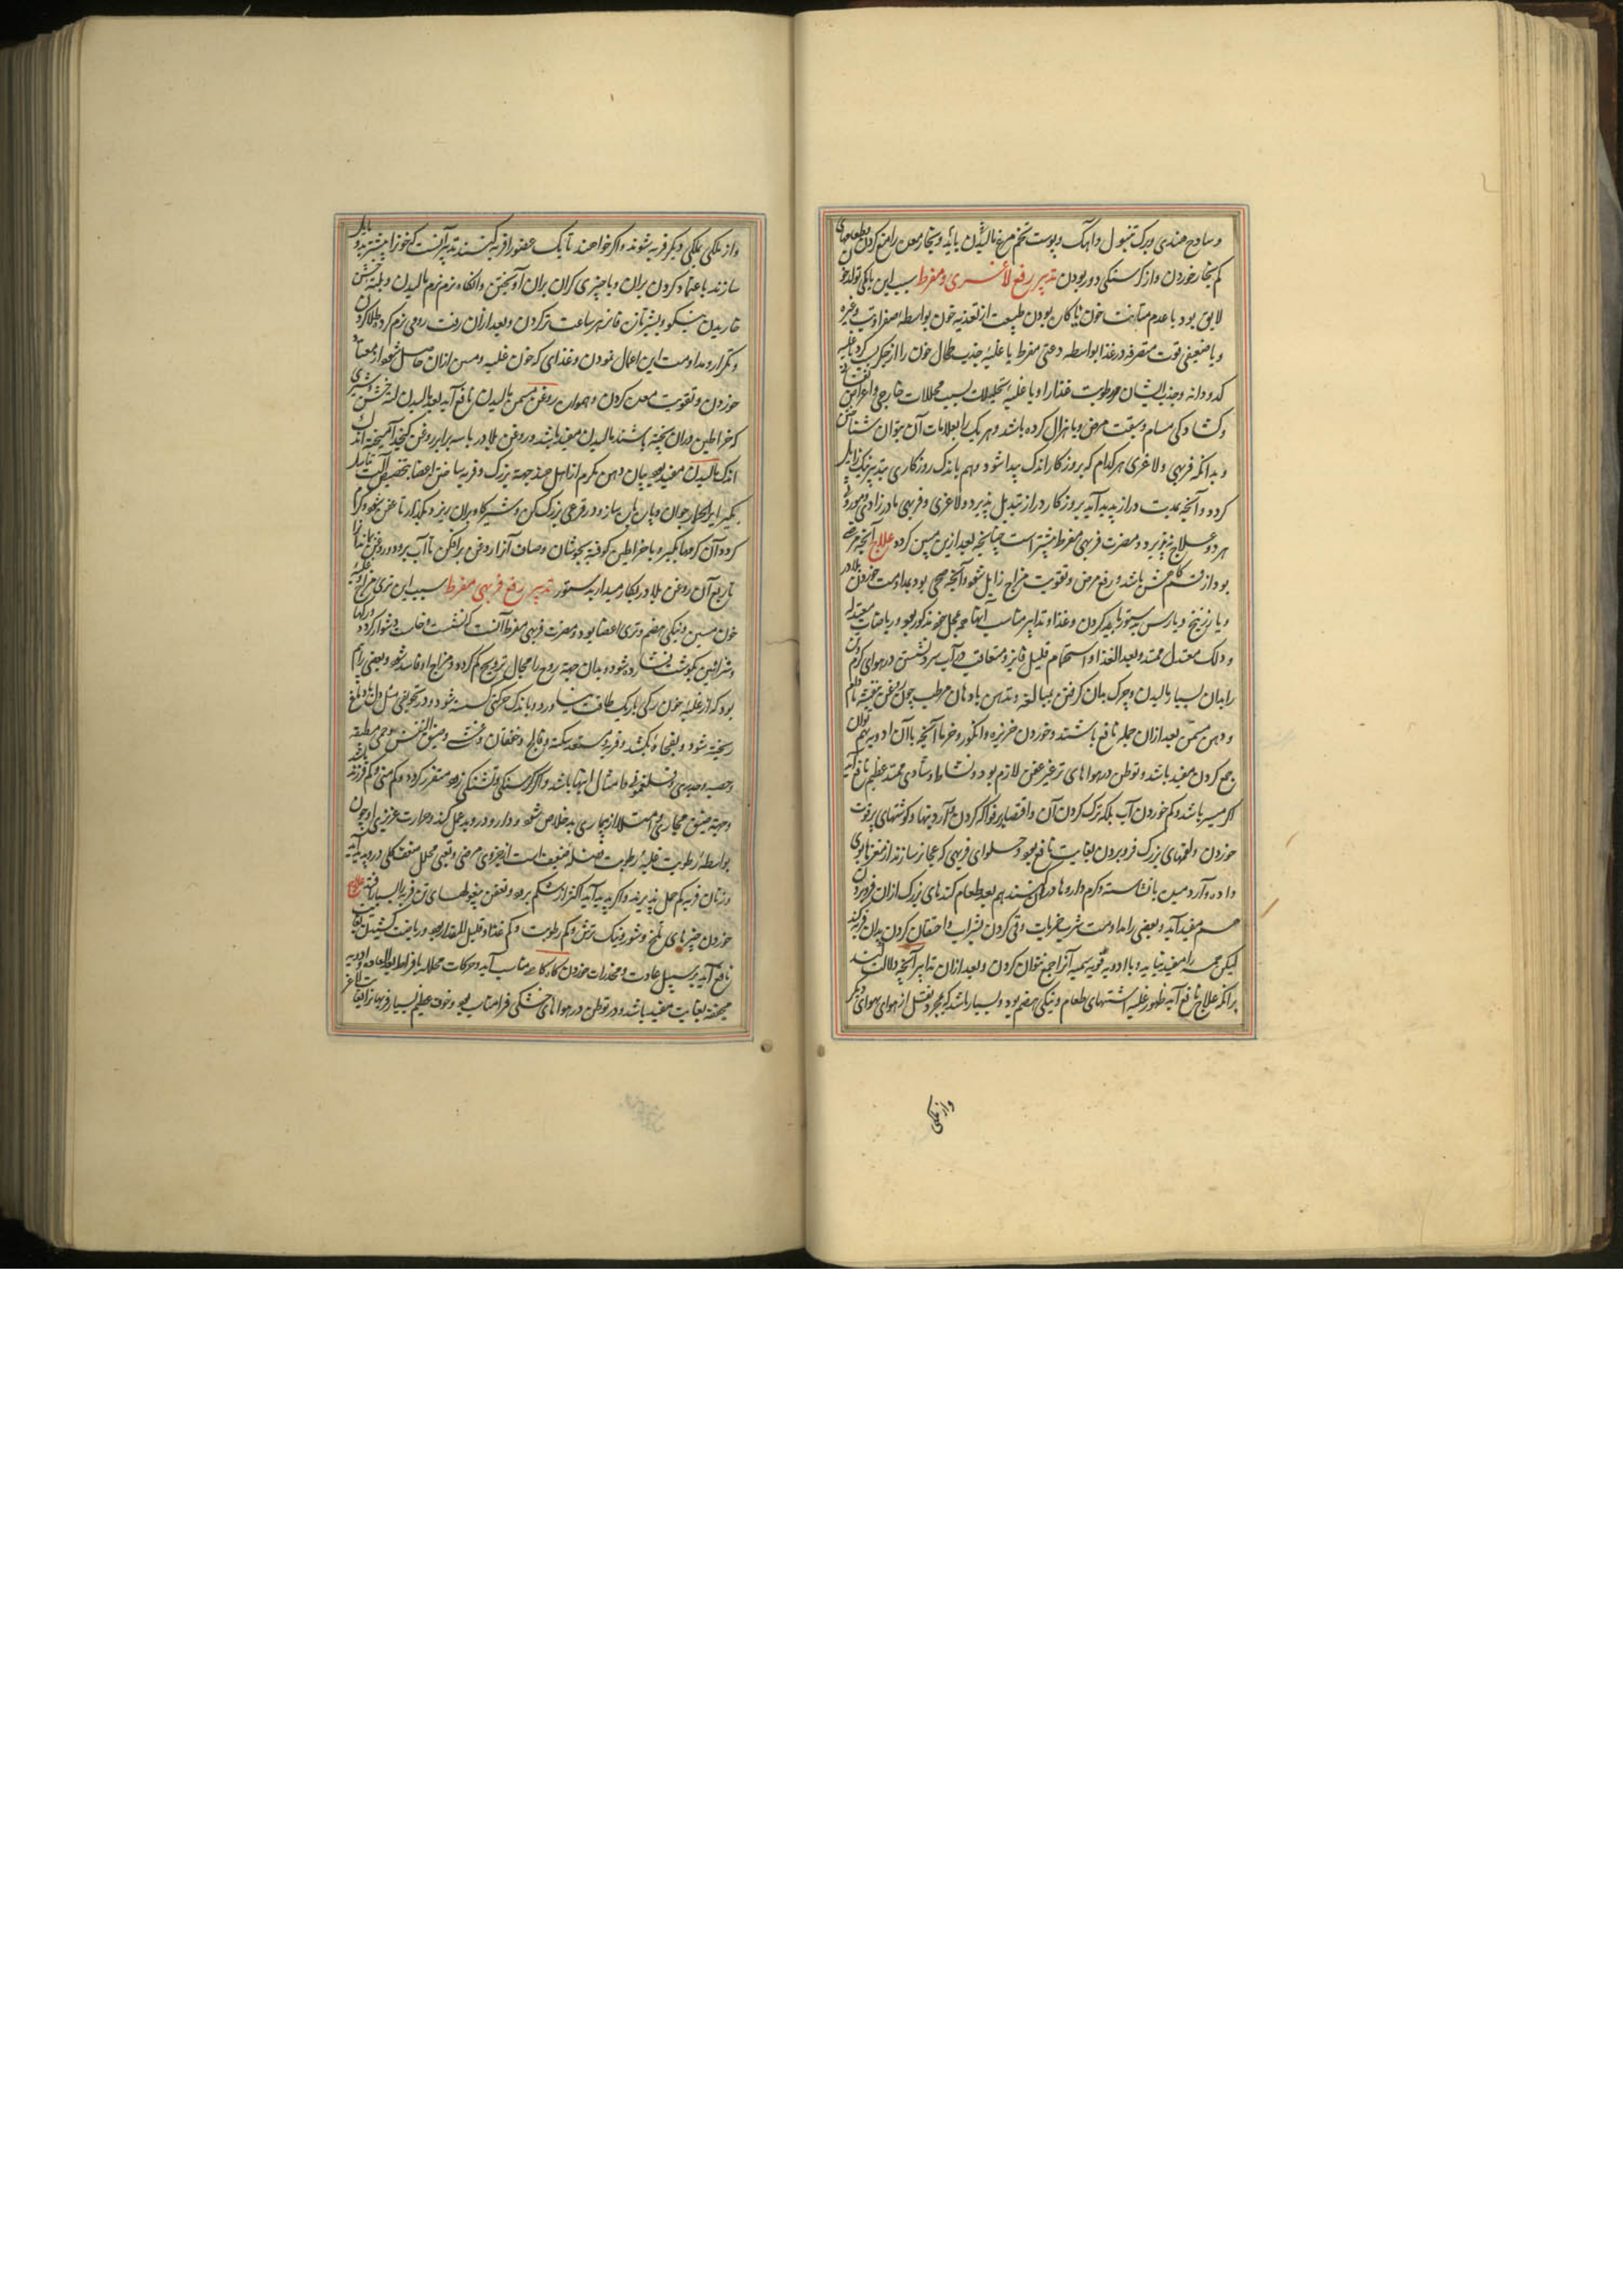 و ساذج هندی و برک تنبول و آهک و پوست تخم مرغ مالیدن باید و بخار معده را منع کردن و طعامهای
کم بخار خوردن و از کرسنکی دور بودن تدبیر رفع لاغری مفرط سبب این یا کمی تولد خون
لایق بود یا عدم متانت خون یا کان بودن طبیعت از تغذیه خون بواسطه صفراویت و غیره
و یا ضعیفی قوت متصرفه در غذا بواسطه دعتی مفرط یا غلبه جذب طحال خون را از جکر یا غلبه
کدو دانه و جذب ایشان مر رطوبت غذا را و یا غلبه تحلیلات بسبب محللات خارجی و اعراض
و کشادکی مسام و سبقت مرض و یا هزال کرده باشد و هر یک را بعلامات آن توان شناخت
و بدانکه فربهی و لاغری هر کدام که بروزکار اندک پیدا شود و هم باندک روزکاری بتدبیر نیک زایل
کردد و آنچه بمدت دراز پدید آید بروزکار دراز تبدیل پذیرد و لاغری و فربهی مادرزادی و موروثی
هر دو علاج نپذیرد و مضرت فربهی مفرط بیشتر است چنانچه بعد ازین مبین کردد علاج آنچه مرض
بود از قسم خشن باشد و رفع مرض و تقویت مزاج زایل شود و آنچه صحی بود بمداومت خوردن بلادر
و یا زرنیخ و یا رس بدستور باید کردن و غذا و تدابیر مناسب آنها بمحل خود مذکور بود و ریاضات معتدله
و دلک معتدل ممتد و بعد الغذا و استحمام قلیل فایز و متعاقب در آب سرد نشستن در هوای کرم
را بدان بسیار مالیدن و چرک بدان کرفتن بمبالغه و تدهین بادهان مرطب چون روغن بنفشه بادام
و دهن مسمن بعد ازان جمله نافع باشند و خوردن خربزه و انکور و خرما آنچه با آن ادویه هم توان
جمع کردن مفید باشد و توطن در هواهای تر غیر عفن لازم بود و نشاط و شادی ممتد عظیم نافع آید
اکر میسر باشد و کم خوردن آب بلکه ترک کردن آن و اقتصار بر فواکه کردن و آردینها و کوشتهای پرقوت
خوردن و لقمهای بزرک فرو بردن بغایت نافع بود و حلوای فربهی که عجایز سازند از مغزها بوی
داده و آرد میده بانشاسته و کرم داروها در کنند هم بعد طعام کندهای بزرک ازان فرو بردن
هم مفید آید و بعضی را مداومت شرب خمریات و قی کردن بشراب و احتقان کردن بدان فربه کند
لیکن همه را مفید نیاید و با ادویه قویه سمیه آنرا جمع نتوان کردن و بعد ازان تدابیر آنچه دلالت کند
برانکه علاج نافع آید ظهور غلبه اشتهای طعام و نیکی هضم بود و بسیار باشد که بمجرد نقل از هوای بهوای دیکر
و از ملکی
و از ملکی بملکی دیکر فربه شوند و اکر خواهند تا یک عضو را فربه کنند تدبیر آنست که خون را بیشتر بدو مایل
سازند باعتماد کردن بران و یا چیزی کران بران آویختن و آنکاه نرم نرم مالیدن و بلته خشن
خاریدن نیکو و بیشتر آن فایز هر ساعت تر کردن و بعد ازان زفت رومی نرم کرده طلا کردن
و تکرار و مداومت این اعمال نمودن و غذای که خون غلیظ و متین ازان حاصل شود از معتاد
خوردن و تقویت معده کردن و همواره روغن مسمن مالیدن نافع آید بعد مالیدن لته خشن و شیری
که خراطین دران پخته باشند مالیدن مفید باشد و روغن بلادر با سه برابر روغن کنجد آمیخته اندک
اندک مالیدن مفید بود بیان دهن مکرم از اهل هند جهة بزرک و فربه ساختن اعضا بتخصیص آلت تناسل
بکیر ایرالحمار جوان و پاره پاره ساز و در قرعی بزرک کن و شیر کاو بران ریز و بکذار تا عفن شود و کرم
کردد آن کرمها بکیر و با خراطین کوفته بجوشان و صاف آنرا روغن برافکن تا آب برود و روغن بماند
تا ربع آن روغن بلادر بکار میدار بدستور تدبیر رفع فربهی مفرط سبب این تری مزاج و غلبه
خون متین و نیکی هضم و تری اعضا بود و مضرت فربهی مفرط آنست که نشست و خاست دشوار کردد و رکها
و شرائین بکوشت فشارده شود و بدان جهة روح را مجال ترویح کم کردد و مزاج او فاسد شود و بعضی را هم
بود که از غلبه خون رکی باریک طاقت نیاورد و باندک حرکتی کسسته شود و در تجویفی مثل دل یا دماغ
ریخته شود و بفجاه بکشد و فربه مستعد سکته و فالج و خفقان و غشی و ضیق النفس و حمی مطبقه
و حصبه و جدری و فلغمونی و امثال اینها باشد و اکر کرسنکی و تشنکی زود متضرر کردد و کم منی و کم فرزند باشد
و جهة ضیق مجاری از امتلا از بیماری بد خلاص شود و دارو درو بد عمل کند و حرارت غریزی او چون
بواسطه رطوبت غلبه رطوبت فضله ضعیف است از جزوی مرضی و تعبی محلل ضعف کلی درو پدید آید
و زنان فربه کم حمل پذیرند و اکر پدید آید اکثر از شکم برود و تعفن بیغولهای تن فربه را بسیار افتد علاج
خوردن چیزهای تلخ و شور و نیک ترش و کم رطوبت و کم غذا و قلیل المقدار بود و ریاضت کشیدن بغایت
نافع آید بر سبیل عادت و مخدرات خوردن کاه کاه مناسب آید و حرکات محلله با فراط بعد العادة و ادویه
مجففه بغایت مفید باشد و در توطن در هواهای خشکی فزا مناسب بود و خوف عظیم بسیار فربهانرا بغایت لاغر